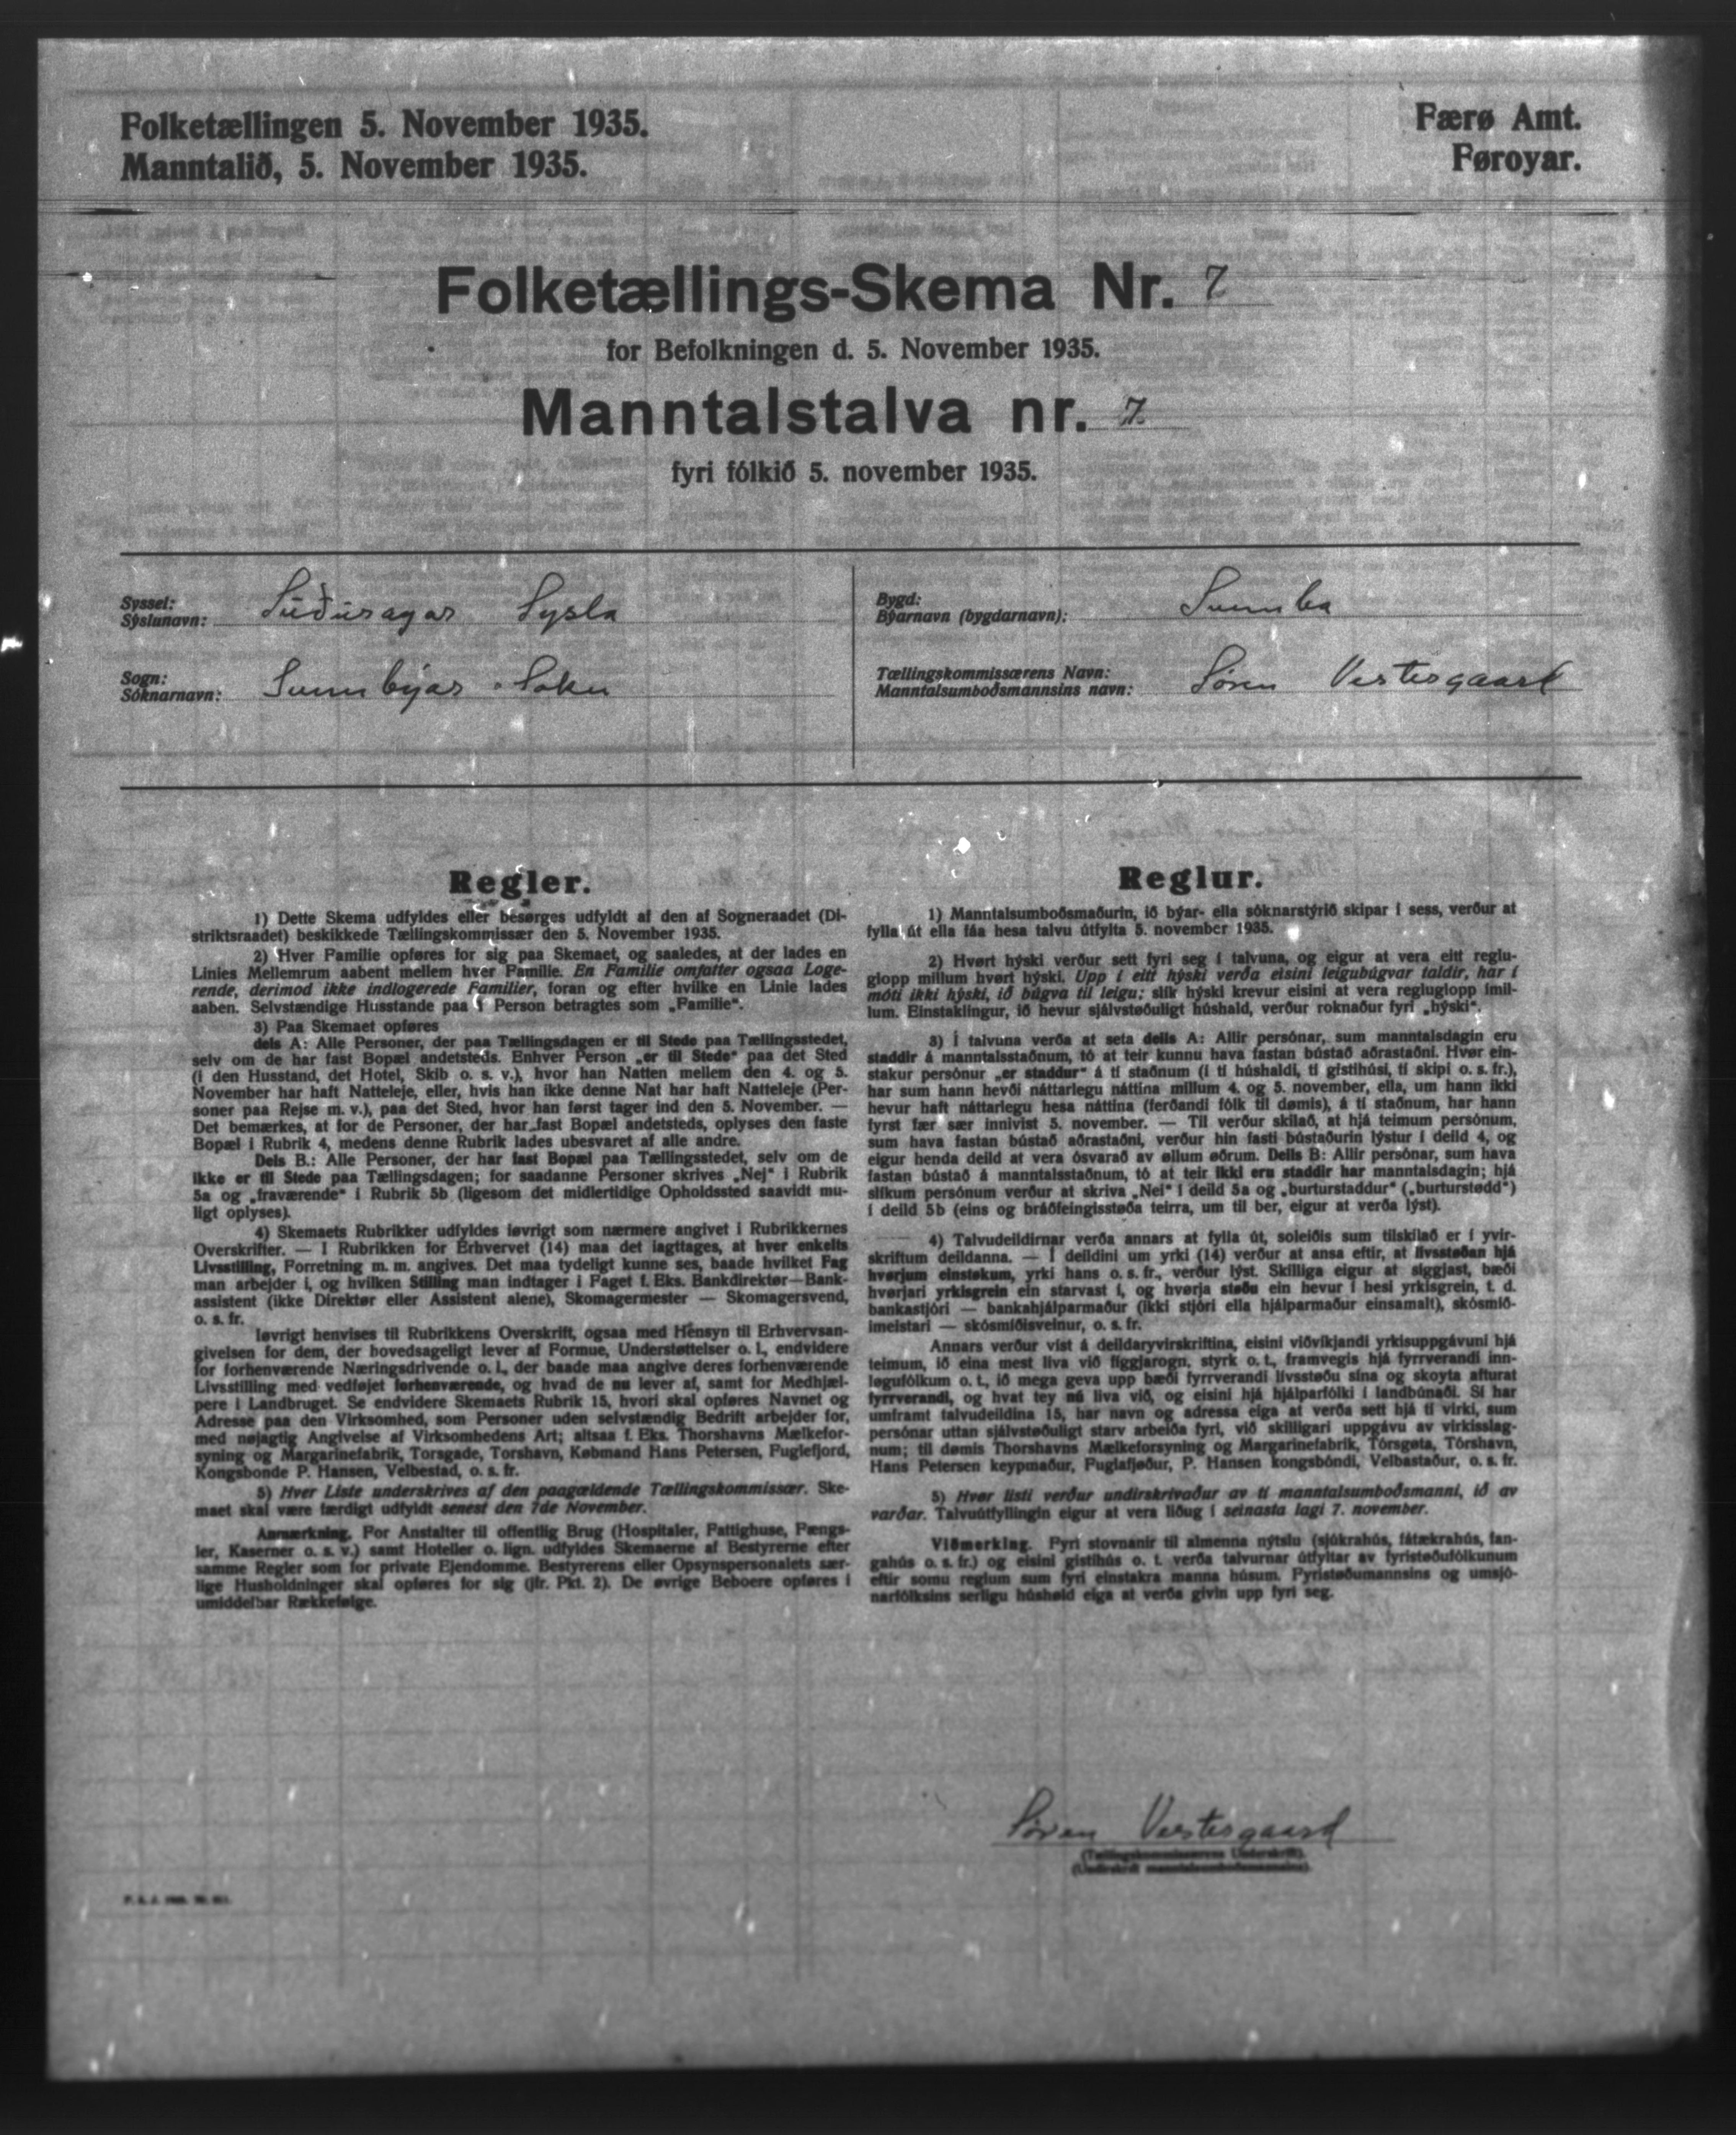 Folketællingen 5. November 1935.
Manntalið, 5. November 1935.
Færø Amt.
Føroyar.
Folketællings-Skema Nr. 7
for Befolkningen d. 5. November 1935.
Manntalstalva nr. 7
fyri fólkið 5. november 1935.
Syssel:
Sýslunavn: Súðuragar Sysla
Sogn:
Sóknarnavn: Sumbýar Sokn
Bygd:
Býarnavn (bygdarnavn): Sumba
Tællingskommissærens Navn:
Manntalsumboðsmannsins navn: Søren Vestergaard
Regler.
1) Dette Skema udfyldes eller besørges udfyldt af den af Sogneraadet (Di-
striktsraadet) beskikkede Tællingskommissær den 5. November 1935.
2) Hver Familie opføres for sig paa Skemaet, og saaledes, at der lades en
Linies Mellemrum aabent mellem hver Familie. En Familie omfatter ogsaa Loge-
rende, derimod ikke indlogerede Familier, foran og efter hvilke en Linie lades
aaben. Selvstændige Husstande paa 1 Person betragtes som „Familie“.
3) Paa Skemaet opføres
dels A: Alle Personer, der paa Tællingsdagen er til Stede paa Tællingsstedet,
selv om de har fast Bopæl andetsteds. Enhver Person „er til Stede“ paa det Sted
(i den Husstand, det Hotel, Skib o. s. v.), hvor han Natten mellem den 4. og 5.
November har haft Natteleje, eller, hvis han ikke denne Nat har haft Natteleje (Per-
soner paa Rejse m. v.), paa det Sted, hvor han først tager ind den 5. November. —
Det bemærkes, at for de Personer, der har fast Bopæl andetsteds, oplyses den faste
Bopæl i Rubrik 4, medens denne Rubrik lades ubesvaret af alle andre.
Dels B.: Alle Personer, der har fast Bopæl paa Tællingsstedet, selv om de
ikke er til Stede paa Tællingsdagen; for saadanne Personer skrives „Nej“ i Rubrik
5a og „fraværende“ i Rubrik 5b (ligesom det midlertidige Opholdssted saavidt mu-
ligt oplyses).
4) Skemaets Rubrikker udfyldes iøvrigt som nærmere angivet i Rubrikkernes
Overskrifter. — I Rubrikken for Erhvervet (14) maa det iagttages, at hver enkelts
Livsstilling, Forretning m. m. angives. Det maa tydeligt kunne ses, baade hvilket Fag
man arbejder i, og hvilken Stilling man indtager i Faget f. Eks. Bankdirektør—Bank-
assistent (ikke Direktør eller Assistent alene), Skomagermester — Skomagersvend,
o. s. fr.
Iøvrigt henvises til Rubrikkens Overskrift, ogsaa med Hensyn til Erhvervsan-
givelsen for dem, der hovedsageligt lever af Formue, Understøttelser o. l., endvidere
for forhenværende Næringsdrivende o. l., der baade maa angive deres forhenværende
Livsstilling med vedføjet forhenværende, og hvad de nu lever af, samt for Medhjæl-
pere i Landbruget. Se endvidere Skemaets Rubrik 15, hvori skal opføres Navnet og
Adresse paa den Virksomhed, som Personer uden selvstændig Bedrift arbejder for,
med nøjagtig Angivelse af Virksomhedens Art; altsaa f. Eks. Thorshavns Mælkefor-
syning og Margarinefabrik, Torsgade, Torshavn, Købmand Hans Petersen, Fuglefjord,
Kongsbonde P. Hansen, Velbestad, o. s. fr.
5) Hver Liste underskrives af den paagældende Tællingskommissær. Ske-
maet skal være færdigt udfyldt senest den 7de November.
Anmærkning. For Anstalter til offentlig Brug (Hospitaler, Fattighuse, Fængs-
ler, Kaserner o. s. v.) samt Hoteller o. lign. udfyldes Skemaerne af Bestyrerne efter
samme Regler som for private Ejendomme. Bestyrerens eller Opsynspersonalets sær-
lige Husholdninger skal opføres for sig (jfr. Pkt. 2). De øvrige Beboere opføres i
umiddelbar Rækkefølge.
Reglur.
1) Manntalsumboðsmaðurin, ið býar- ella sóknarstýrið skipar í sess, verður at
fylla út ella fáa hesa talvu útfylta 5. november 1935.
2) Hvørt hýski verður sett fyri seg í talvuna, og eigur at vera eitt reglu-
glopp millum hvørt hýski. Upp í eitt hýski verða eisini leigubúgvar taldir, har í
móti ikki hýski, ið búgva til leigu; slík hýski krevur eisini at vera regluglopp ímil-
lum. Einstaklingur, ið hevur sjálvstøðuligt húshald, verður roknaður fyri „hýski“.
3) Í talvuna verða at seta dells A: Allir persónar, sum manntalsdagin eru
staddir á manntalsstaðnum, tó at teir kunnu hava fastan bústað aðrastaðni. Hvør ein-
stakur persónur „er staddur“ á tí staðnum (í tí húshaldi, tí gistihúsi, tí skipi o. s. fr.),
har sum hann hevði náttarlegu náttina millum 4. og 5. november, ella, um hann ikki
hevur haft náttarlegu hesa náttina (ferðandi fólk til dømis), á tí staðnum, har hann
fyrst fær sær innivist 5. november. — Til verður skilað, at hjá teimum persónum,
sum hava fastan bústað aðrastaðni, verður hin fasti bústaðurin lýstur í deild 4, og
eigur henda deild at vera ósvarað av øllum øðrum. Dells B: Allir persónar, sum hava
fastan bústað á manntalsstaðnum, tó at teir ikki eru staddir har manntalsdagin; hjá
slíkum persónum verður at skriva „Nei“ í deild 5a og „burturstaddur“ („burturstødd“)
í deild 5b (eins og bráðfeingisstøða teirra, um til ber, eigur at verða lýst).
4) Talvudeildirnar verða annars at fylla út, soleiðis sum tilskilað er í yvir-
skriftum deildanna. — Í deildini um yrki (14) verður at ansa eftir, at livsstøðan hjá
hvørjum einstøkum, yrki hans o. s. fr., verður lýst. Skilliga eigur at siggjast, bæði
hvørjari yrkisgrein ein starvast í, og hvørja støðu ein hevur í hesi yrkisgrein, t. d.
bankastjóri — bankahjálparmaður (ikki stjóri ella hjálparmaður einsamalt), skósmið-
imeistari — skósmiðisveinur, o. s. fr.
Annars verður vist á deildaryvirskriftina, eisini viðvíkjandi yrkisuppgávuni hjá
teimum, ið eina mest liva við fíggjarogn, styrk o. t., framvegis hjá fyrrverandi inn-
løgufólkum o. t., ið mega geva upp bæði fyrrverandi livsstøðu sína og skoyta afturat
fyrrverandi, og hvat tey nú liva við, og eisini hjá hjálparfólki í landbúnaði. Sí har
umframt talvudeildina 15, har navn og adressa eiga at verða sett hjá tí virki, sum
persónar uttan sjálvstøðuligt starv arbeiða fyri, við skilligari uppgávu av virkisslag-
num; til dømis Thorshavns Mælkeforsyning og Margarinefabrik, Tórsgøta, Tórshavn,
Hans Petersen keypmaður, Fuglafjøður, P. Hansen kongsbóndi, Velbastaður, o. s. fr.
5) Hvør listi verður undirskrivaður av tí manntalsumboðsmanni, ið av
varðar. Talvuútfyllingin eigur at vera liðug í seinasta lagi 7. november.
Viðmerking. Fyri stovnanir til almenna nýtslu (sjúkrahús, fátækrahús, fan-
gahús o. s. fr.) og eisini gistihús o. t. verða talvurnar útfyltar av fyristøðufólkunum
eftir somu reglum sum fyri einstakra manna húsum. Fyristøðumannsins og umsjó-
narfólksins serligu húshøld eiga at verða givin upp fyri seg.
Søren Vestergaard
(Tællingskommissærens Underskrift).
(Undirskrift manntalsumboðsmannsins).